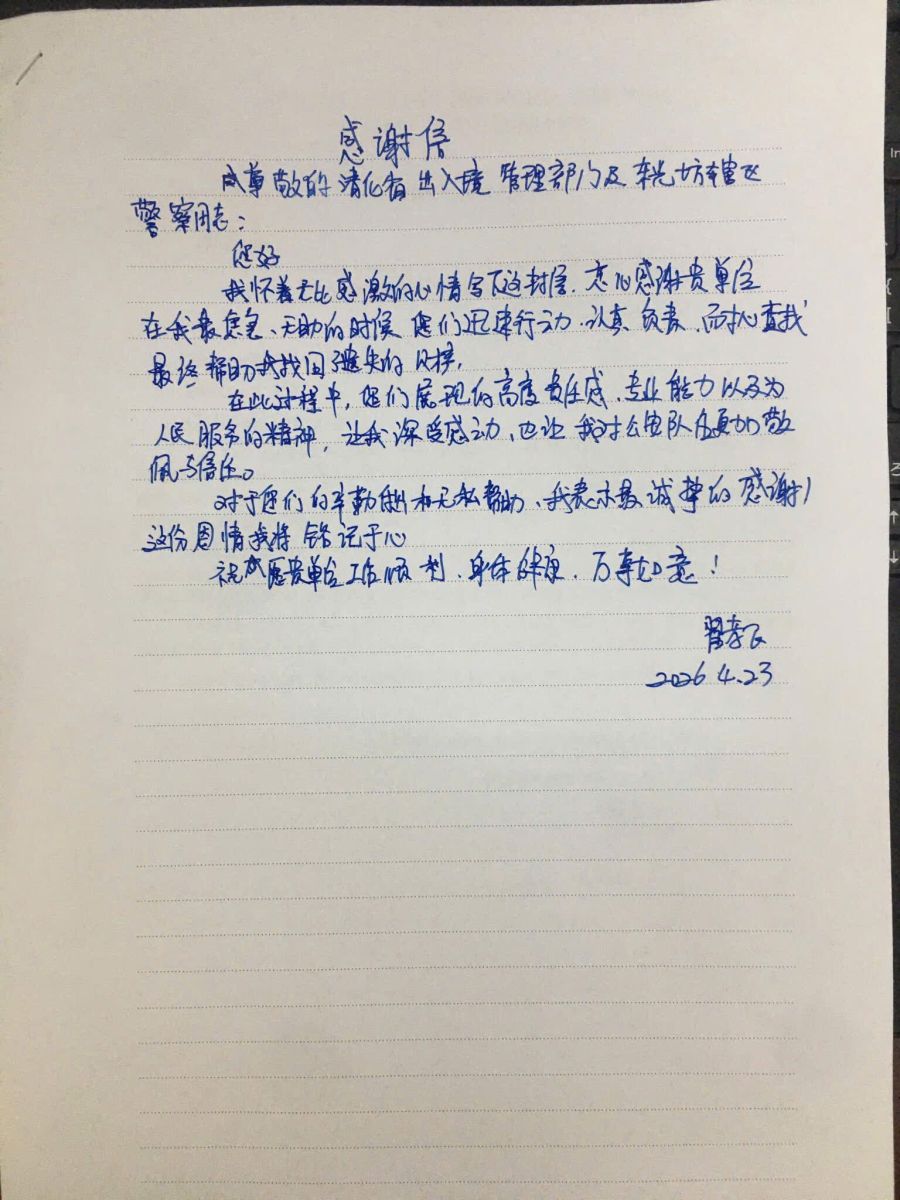 感谢信
尊敬的清化省出入境管理部门及东光坊辖区
警察同志:
您好
我怀着无比感激的心情写下这封信,衷心感谢贵单位
在我最危急、无助的时候 您们迅速行动、认真负责、耐心查找
最终帮助我找回了遗失的
在此过程中,您们展现的高度责任感、专业能力以及为
人民服务的精神,让我深受感动,也让我对公安队伍更加敬
佩与信任。
对于您们的辛勤付出和无私帮助、我表示最诚挚的感谢!
这份恩情我将铭记于心
祝愿贵单位工作顺利、身体健康、万事如意!
2026.4.23